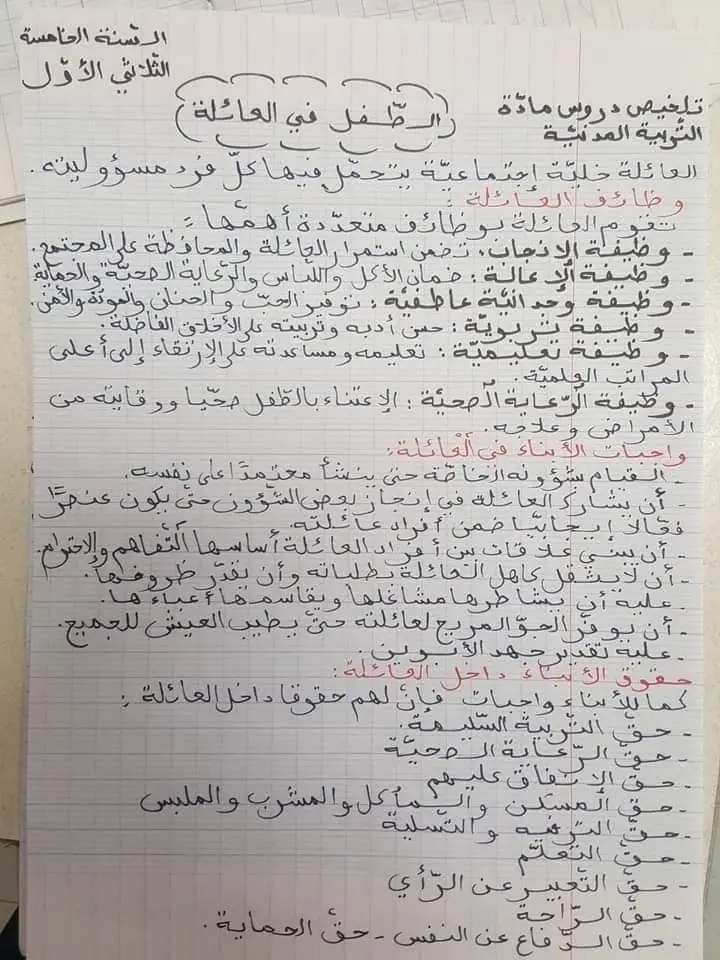 السّنة الخامسة
الثّلاثي الأوّل
تلخيص دروس مادّة
التّربية المدنيّة
الطّفل في العائلة
العائلة خليّة إجتماعيّة يتحمّل فيها كلّ فرد مسؤوليته.
وظائف العائلة:
تقوم العائلة بوظائف متعدّدة أهمّها:
- وظيفة الإنجاب: تضمن استمرار العائلة والمحافظة على المجتمع.
- وظيفة الإعالة: ضمان الأكل واللباس والرّعاية الصّحيّة والحماية
- وظيفة وجدانيّة عاطفيّة: توفير الحبّ والحنان والمودّة والأمن.
- وظيفة تربويّة: حسن أدبه وتربيته على الأخلاق الفاضلة.
- وظيفة تعليميّة: تعليمه ومساعدته على الإرتقاء إلى أعلى
المراتب العلميّة.
- وظيفة الرّعاية الصّحيّة: الإعتناء بالطّفل صحّيا ووقايته من
الأمراض وعلاجه.
واجبات الأبناء في العائلة:
- القيام بشؤونه الخاصّة حتى ينشأ معتمدًا على نفسه.
- أن يشارك العائلة في إنجاز بعض الشّؤون حتّى يكون عنصرًا
فعّالا إيجابيّا ضمن أفراد عائلته.
- أن يبني علاقات بين أفراد العائلة أساسها التّفاهم والإحترام.
- أن لا يثقل كاهل العائلة بطلباته وأن يقدّر ظروفها.
- عليه أن يشاطرها مشاغلها ويقاسمها أعباءها.
- أن يوفّر الجوّ المريح لعائلته حتّى يطيب العيش للجميع.
- عليه تقدير جهد الأبوين.
حقوق الأبناء داخل العائلة:
كما للأبناء واجبات فإنّ لهم حقوقا داخل العائلة:
- حقّ التّربية السّليمة.
- حقّ الرّعاية الصّحيّة
- حقّ الإنفاق عليهم
- حقّ المسكن والمأكل والمشرب والملبس
- حقّ التّرفيه والتّسلية
- حقّ التّعلّم
- حقّ التّعبير عن الرّأي
- حقّ الرّاحة
- حقّ الدّفاع عن النفس - حقّ الحماية.